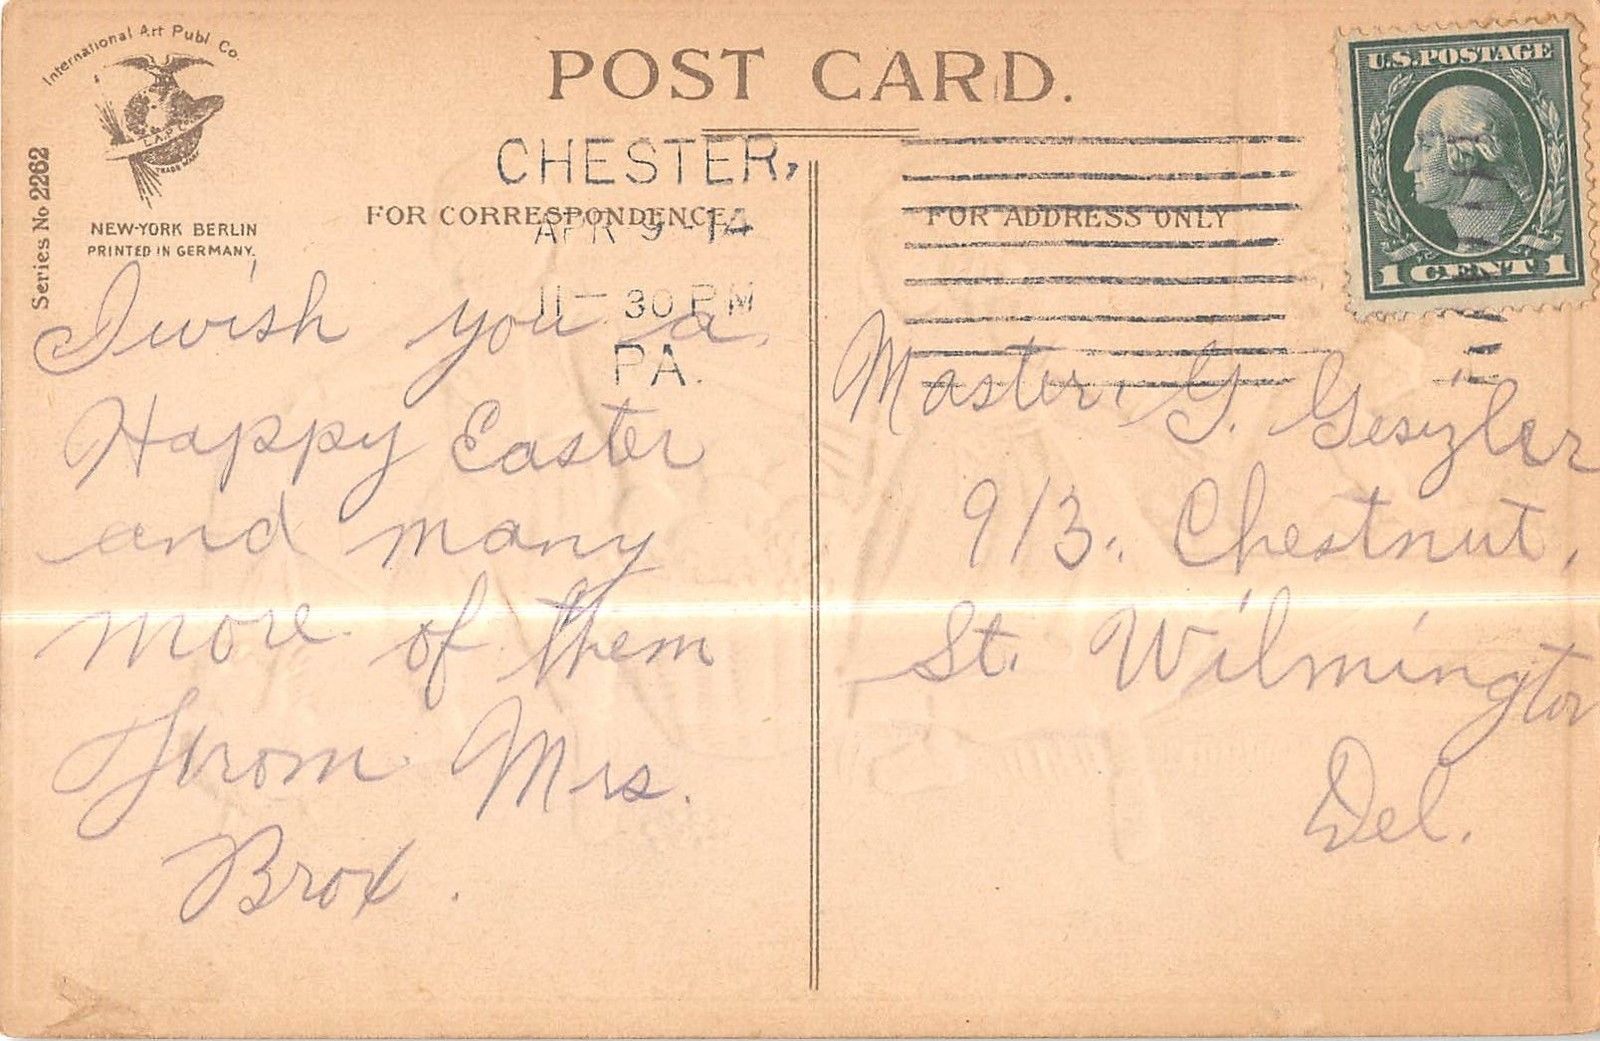 International Art Publ Co.
I.A.P.
TRADE MARK
NEW-YORK BERLIN
PRINTED IN GERMANY.
Series No 2262
POST CARD.
CHESTER,
APR 9-14
11-30 PM
PA.
FOR CORRESPONDENCE
FOR ADDRESS ONLY
U.S. POSTAGE
1 CENT 1
I wish you a
Happy Easter
and many
more of them
From Mrs.
Brox.
Master. G.
913. Chestnut.
St. Wilmington
Del.